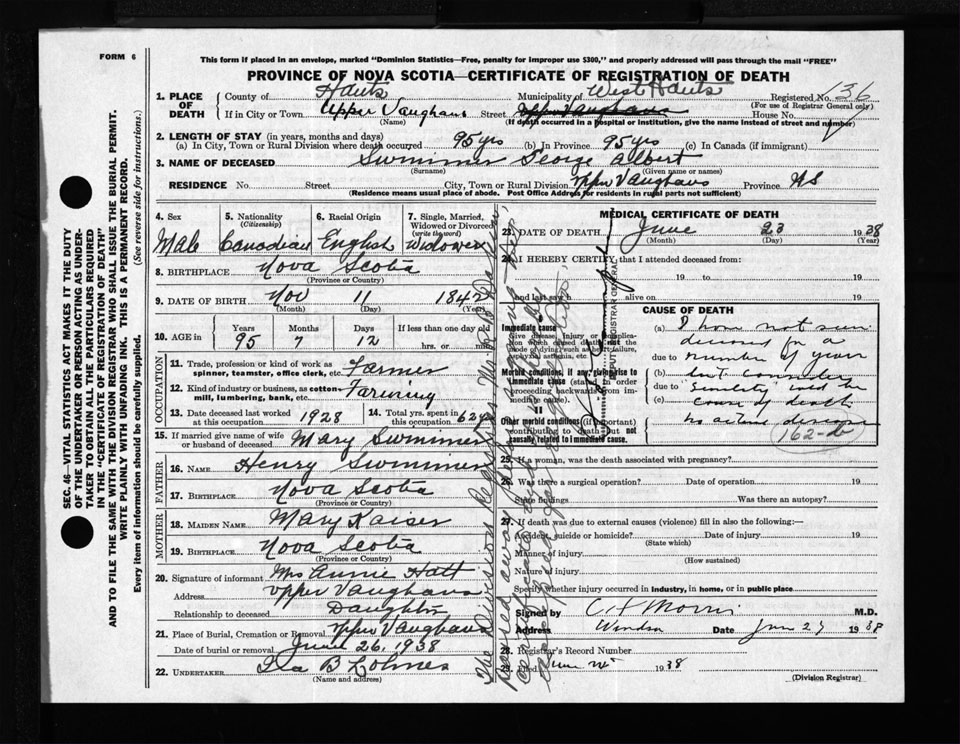 FORM 6
This form if placed in an envelope, marked "Dominion Statistics—Free, penalty for improper use $300," and properly addressed will pass through the mail "FREE"
PROVINCE OF NOVA SCOTIA—CERTIFICATE OF REGISTRATION OF DEATH
SEC. 46—VITAL STATISTICS ACT MAKES IT THE DUTY
OF THE UNDERTAKER OR PERSON ACTING AS UNDER-
TAKER TO OBTAIN ALL THE PARTICULARS REQUIRED
IN THE "CERTIFICATE OF REGISTRATION OF DEATH"
AND TO FILE THE SAME WITH THE DIVISION REGISTRAR WHO SHALL ISSUE THE BURIAL PERMIT.
WRITE PLAINLY WITH UNFADING INK. THIS IS A PERMANENT RECORD.
Every item of information should be carefully supplied. (See reverse side for instructions.)
1. PLACE OF DEATH County of Hants Municipality of West Hants Registered No. 136
(For use of Registrar General only)
If in City or Town Upper Vaughans Street Upper Vaughans House No.
(Name) (If death occurred in a hospital or institution, give the name instead of street and number)
2. LENGTH OF STAY (in years, months and days)
(a) In City, Town or Rural Division where death occurred 95 yrs (b) In Province 95 yrs (c) In Canada (if immigrant)
3. NAME OF DECEASED Swimmer George Albert
(Surname) (Given name or names)
RESIDENCE No. Street City, Town or Rural Division Upper Vaughans Province NS
(Residence means usual place of abode. Post Office Address for residents in rural parts not sufficient)
4. Sex Male
5. Nationality (Citizenship) Canadian
6. Racial Origin English
7. Single, Married, Widowed or Divorced (write the word) Widower
8. BIRTHPLACE Nova Scotia
(Province or Country)
9. DATE OF BIRTH Nov 11 1842
(Month) (Day) (Year)
10. AGE in Years 95 Months 7 Days 12 If less than one day old hrs. or
OCCUPATION
11. Trade, profession or kind of work as spinner, teamster, office clerk, etc. Farmer
12. Kind of industry or business, as cotton-mill, lumbering, bank, etc. Farming
13. Date deceased last worked at this occupation 1928
14. Total yrs. spent in this occupation 62 y
15. If married give name of wife or husband of deceased Mary Swimmer
FATHER
16. NAME Henry Swimmer
17. BIRTHPLACE Nova Scotia
(Province or Country)
MOTHER
18. MAIDEN NAME Mary Kaiser
19. BIRTHPLACE Nova Scotia
(Province or Country)
20. Signature of informant Mrs Annie Hatt
Address Upper Vaughans
Relationship to deceased Daughter
21. Place of Burial, Cremation or Removal Upper Vaughans
Date of burial or removal June 26, 1938
22. UNDERTAKER Ida B Lohnes
(Name and address)
MEDICAL CERTIFICATE OF DEATH
23. DATE OF DEATH June 23 1938
(Month) (Day) (Year)
24. I HEREBY CERTIFY that I attended deceased from:
19 to 19
and last saw h alive on 19
Immediate cause
Give disease, injury or complica-
tion which caused death, not the
mode of dying, such as heart failure,
asphyxia, asthenia, etc.
Morbid conditions, if any, giving rise to
immediate cause (stated in order
proceeding backwards from im-
mediate cause).
II
Other morbid conditions (if important)
contributing to death but not
causally related to immediate cause.
CAUSE OF DEATH
(a) I have not seen
deceased for a
due to number of years
(b) but consider
due to "Senility" was the
(c) cause of death
no actual disease
162-b
DEPUTY REGISTRAR GENERAL
25. If a woman, was the death associated with pregnancy?
26. Was there a surgical operation? Date of operation 19
State findings Was there an autopsy?
27. If death was due to external causes (violence) fill in also the following:—
Accident, suicide or homicide? Date of injury 19
(State which)
Manner of injury
(How sustained)
Nature of injury
Specify whether injury occurred in industry, in home, or in public place
Signed by C H Morris M.D.
Address Windsor Date June 27 1938
28. Registrar's Record Number
Filed June 1938
(Division Registrar)